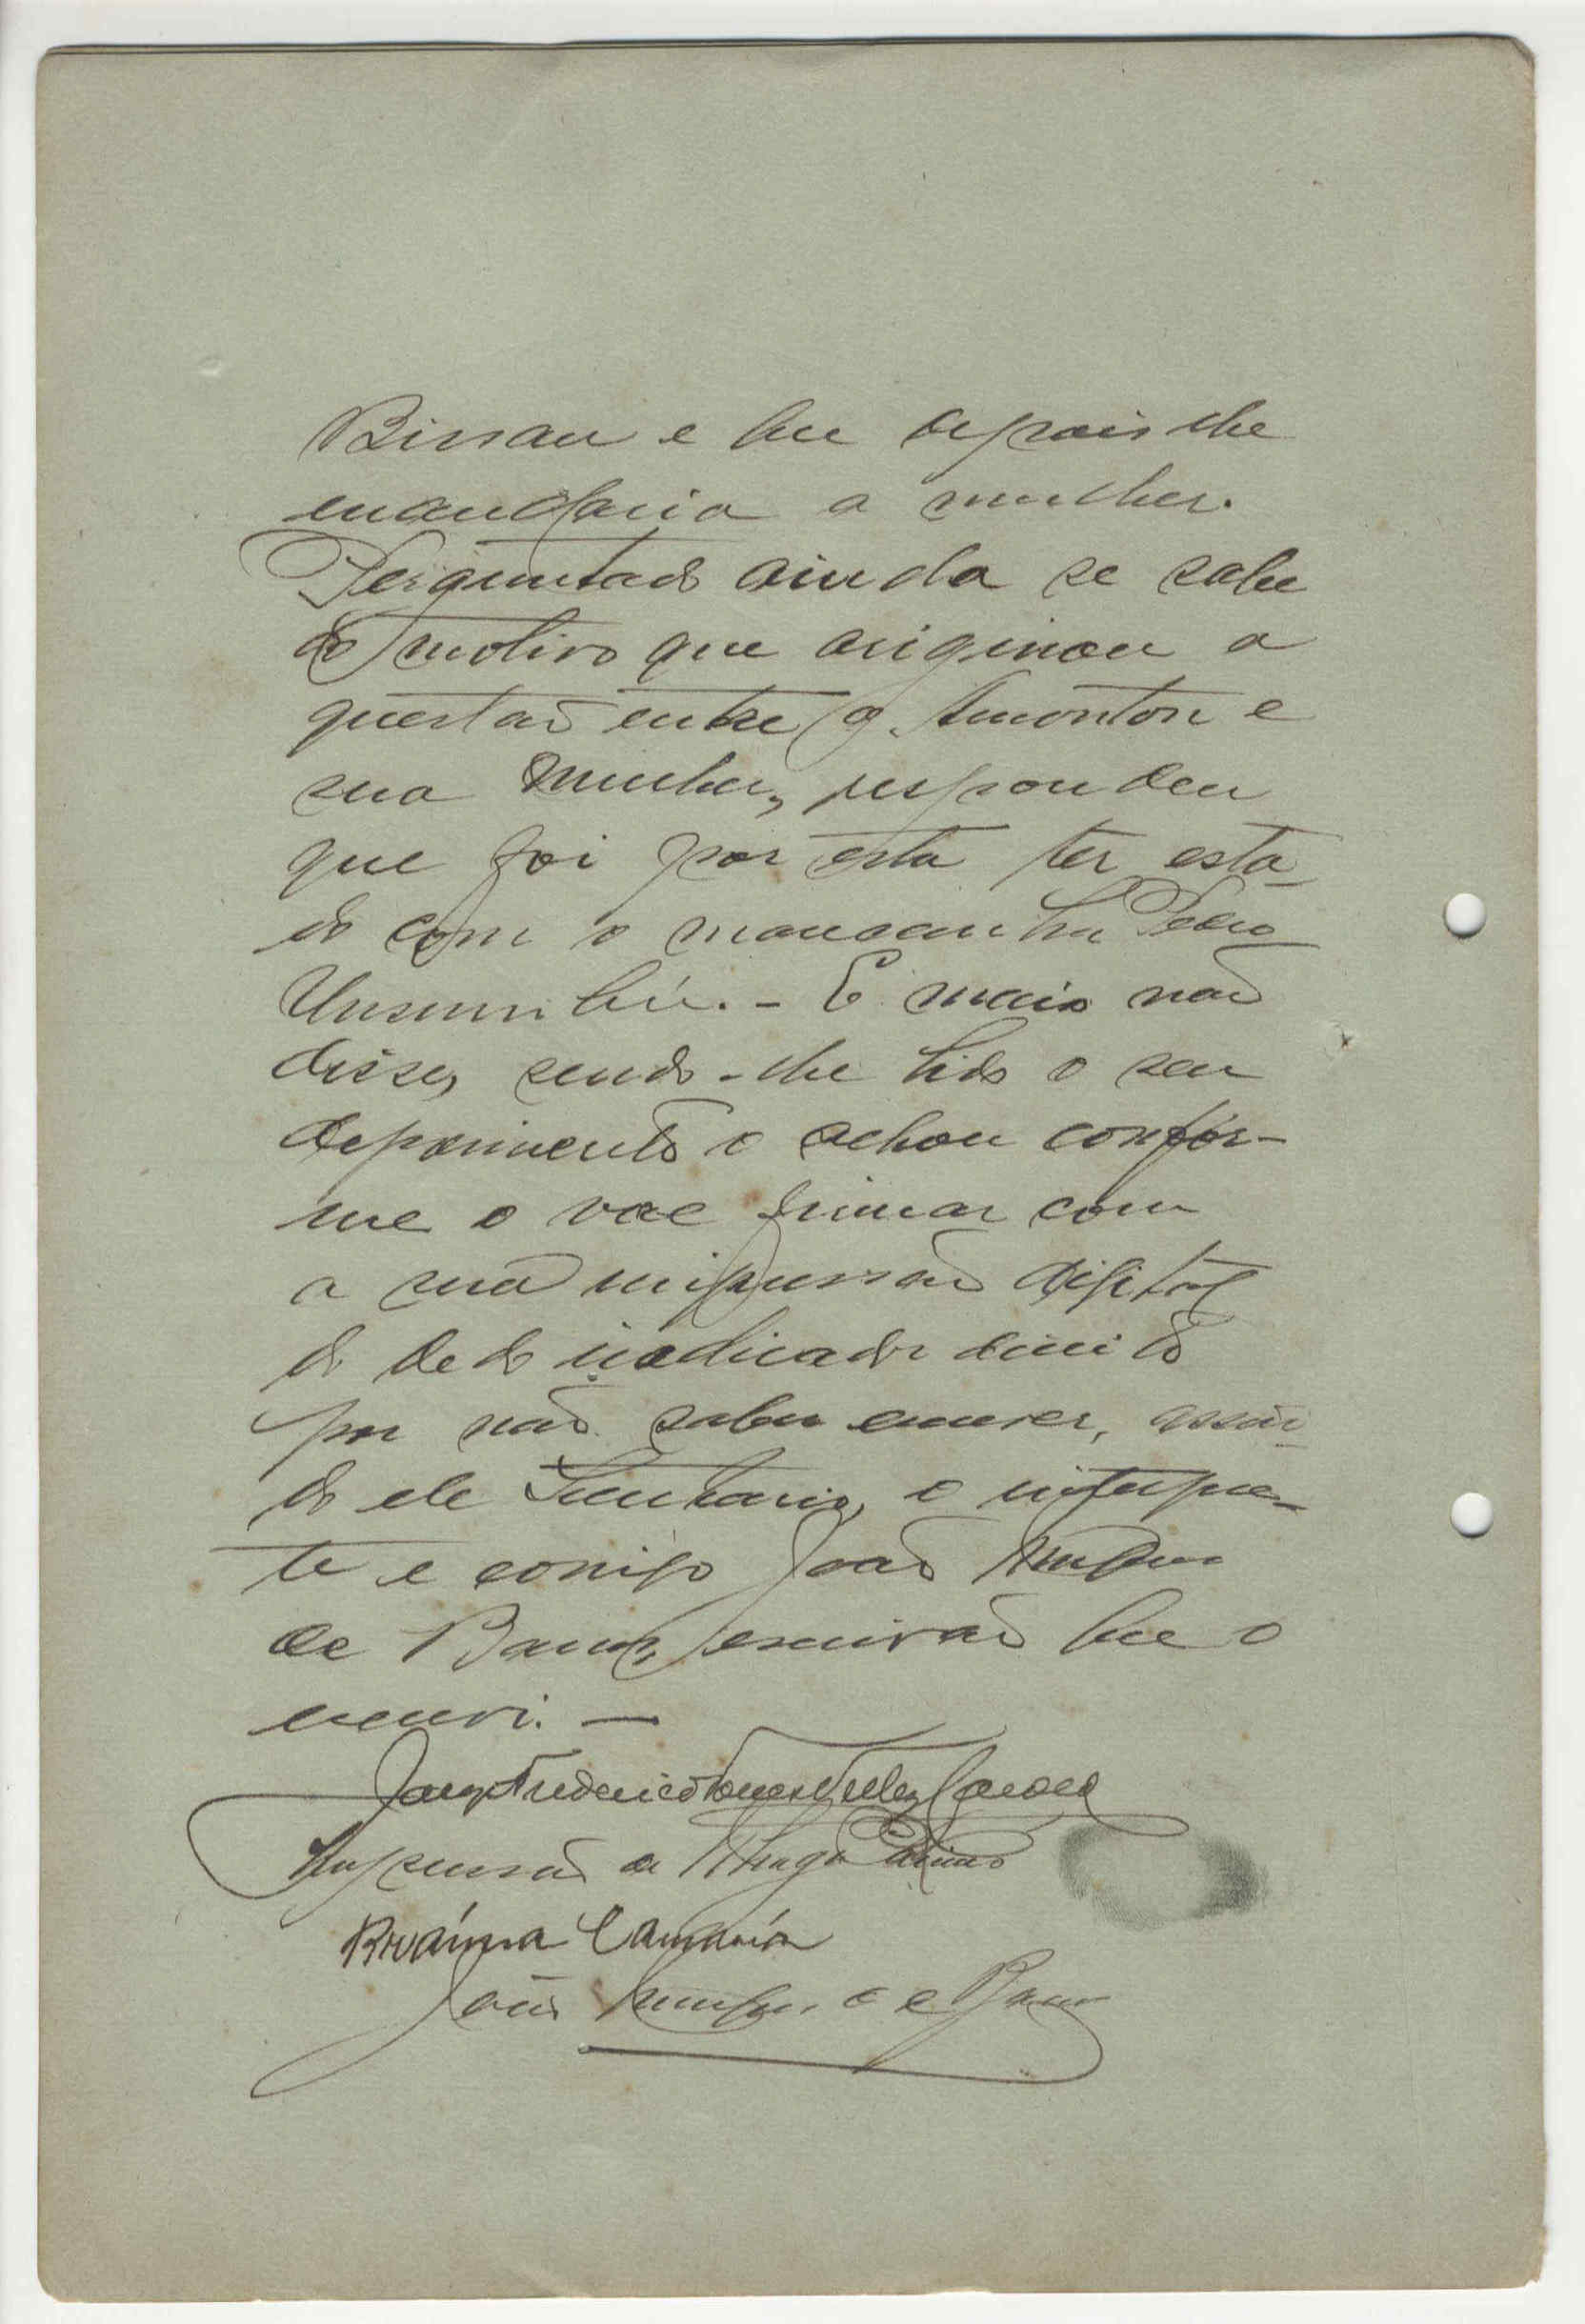 Bissau e que depois lhe
mandaria a mulher.
Perguntado ainda se sabe
do motivo que originou a
questão entre o Amonton e
sua mulher, respondeu
que foi por esta ter esta-
do com o mansoanha Pedro
E mais não
disse, sendo-lhe lido o seu
depoimento o achou confor-
me o vae firmar com
a sua impressão digital
do dedo indicador direito
por não saber escrever, assinan-
do ele Secretario, o interpre-
te e comigo João
de Barros, escrivão que o
escrevi. —
Jorge Frederico Torres Vellez Caroço
Impressão de
Camará
João de Barros